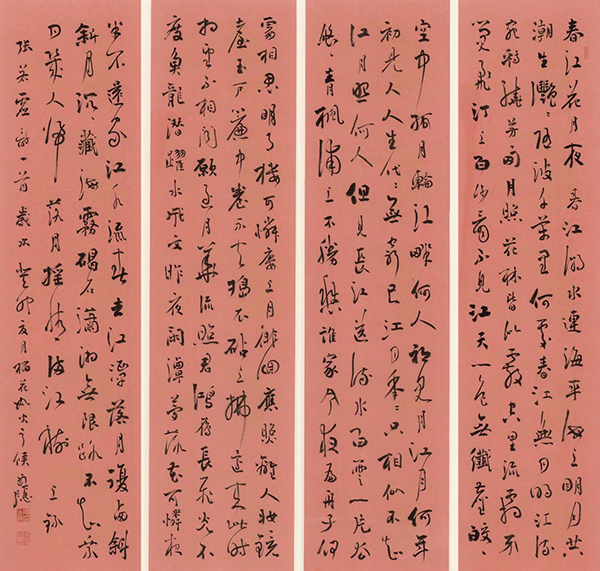 春江花月夜 春江潮水連海平海上明月共
潮生灧灧隨波千萬里何處春江無月明江流
宛轉繞芳甸月照花林皆似霰空里流霜不
覺飛汀上白沙看不見江天一色無纖塵皎皎
空中孤月輪江畔何人初見月江月何年
初照人人生代代無窮已江月年年只相似不知
江月照何人但見長江送流水白雲一片去
悠悠青楓浦上不勝愁誰家今夜扁舟子何
處相思明月樓可憐樓上月徘徊應照離人妝鏡
臺玉戶簾中卷不去搗衣砧上拂還來此時
相望不相聞願逐月華流照君鴻雁長飛光不
度魚龍潛躍水成文昨夜閑潭夢落花可憐春
半不還家江水流春去江潭落月復西斜
斜月沉沉藏海霧碣石瀟湘無限路不知乘
月幾人歸落月搖情滿江樹 上錄
張若虛詩一首歲次癸卯夏月榴花似火之候